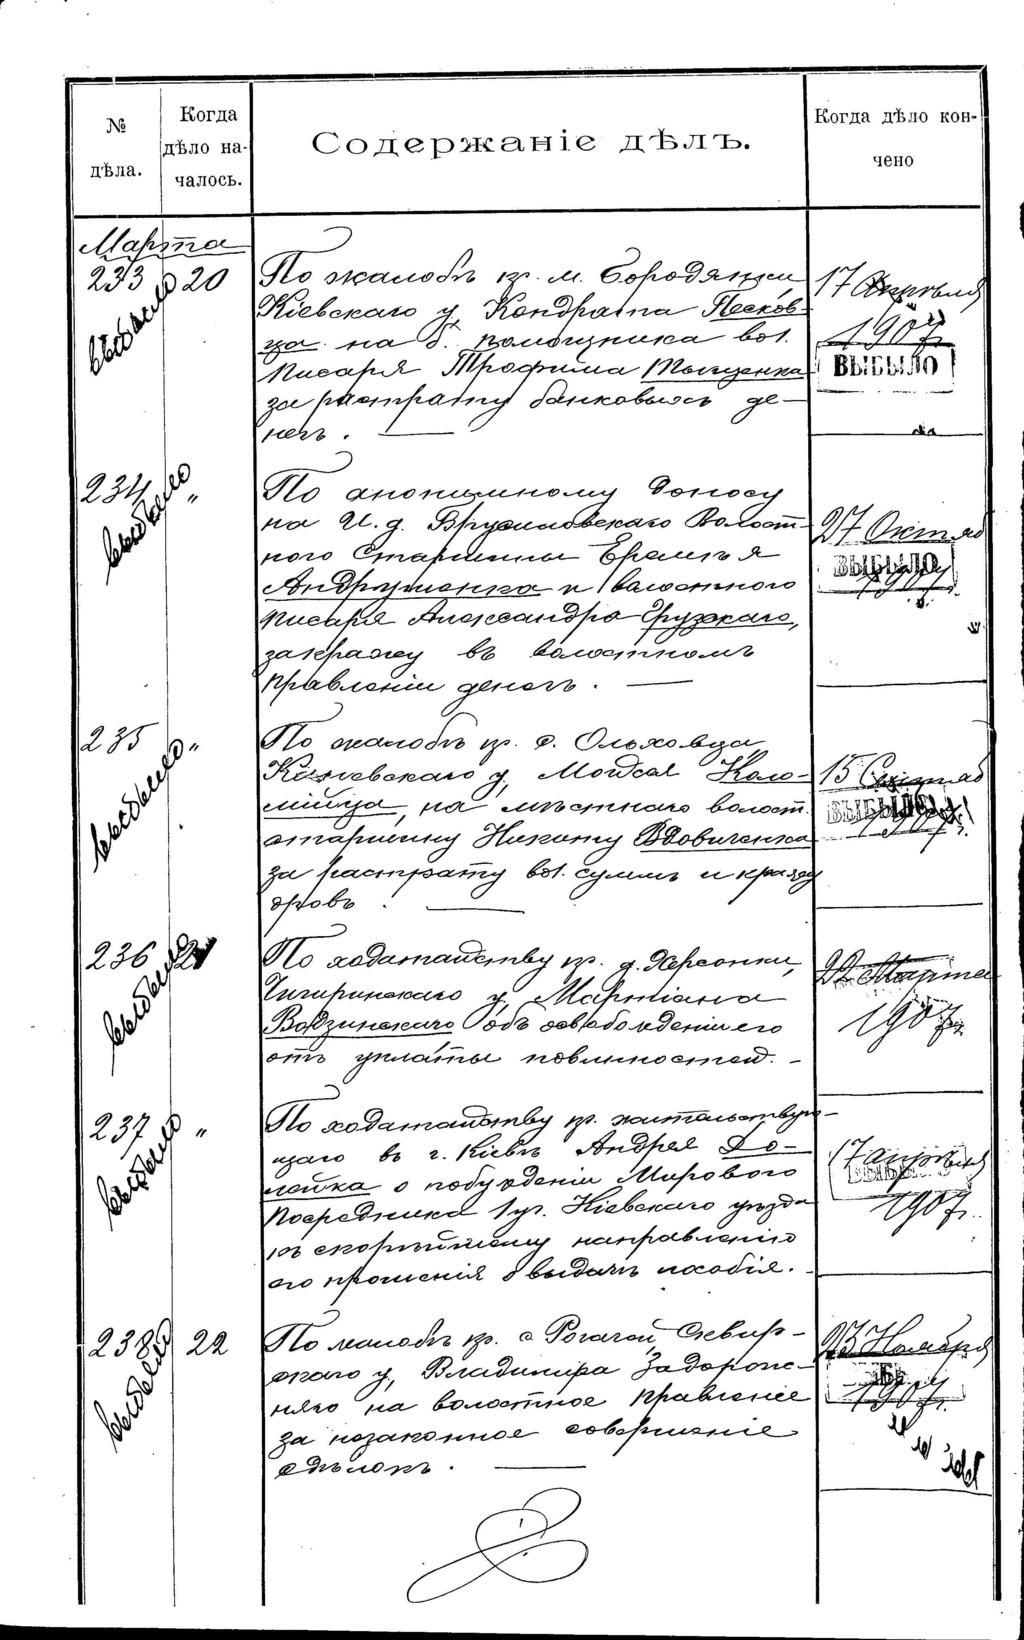 № дѣла.
Когда дѣло на-
чалось.
Содержаніе дѣлъ.
Когда дѣло кон-
чено
Марта
233 20
выбыло
По жалобѣ кр. м. Бородянки
Кіевскаго у. Кондрата Песков-
ца на б. помощника вол.
писаря Трофима Тыщенка
за растрату банковыхъ де-
негъ.
17 Апрѣля
1907 г.
ВЫБЫЛО
234 "
выбыло
По анонимному доносу
на И. д. Брусиловскаго Волост-
ного Старшины Еремѣя
Андрушенка и волостного
писаря Александра Грузскаго,
за кражу въ волостномъ
правленіи денегъ.
27 Октяб
1907 г.
ВЫБЫЛО
235 "
выбыло
По жалобѣ кр. с. Ольховца,
у. Моисея Коло-
мійца, на мѣстнаго волост.
старшину Никиту Вдовиченка
за растрату вол. суммъ и кражу
дровъ.
15 Сентяб
1907 г.
ВЫБЫЛО
236 21
выбыло
По ходатайству кр. д. Херсонки,
Чигиринскаго у. Мартіана
Водзинскаго объ освобожденіи его
отъ уплаты повинностей.
22 Марта
1907 г.
237 "
выбыло
По ходатайству кр. жительствую-
щаго въ г. Кіевѣ Андрея До-
лейка о побужденіи Мирового
Посредника 1 уч. Кіевскаго уѣзда
къ скорѣйшему направленію
его прошенія о выдачѣ пособія.
17 апрѣля
ВЫБЫЛО
1907 г.
238 22
выбыло
По жалобѣ кр. с. Рогачей, Сквир-
скаго у., Владиміра Задорож-
няго на волостное правленіе
за незаконное совершеніе
сдѣлокъ.
23 Ноября
1907 г.